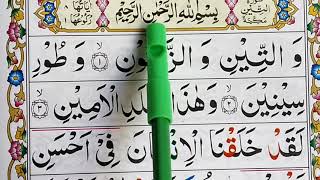 بِسْمِ اللّٰهِ الرَّحْمٰنِ الرَّحِیْمِ
وَ التِّیْنِ وَ الزَّ ُوْنِ ۙ﴿۱﴾ وَ طُوْرِ
سِیْنِیْنَ ۙ﴿۲﴾ وَهٰذَا لَدِ الْاَمِیْنِ ۙ﴿۳﴾
لَقَدْ خَلَقْنَا الْاِنْ انَ فِیْۤ اَحْسَنِ